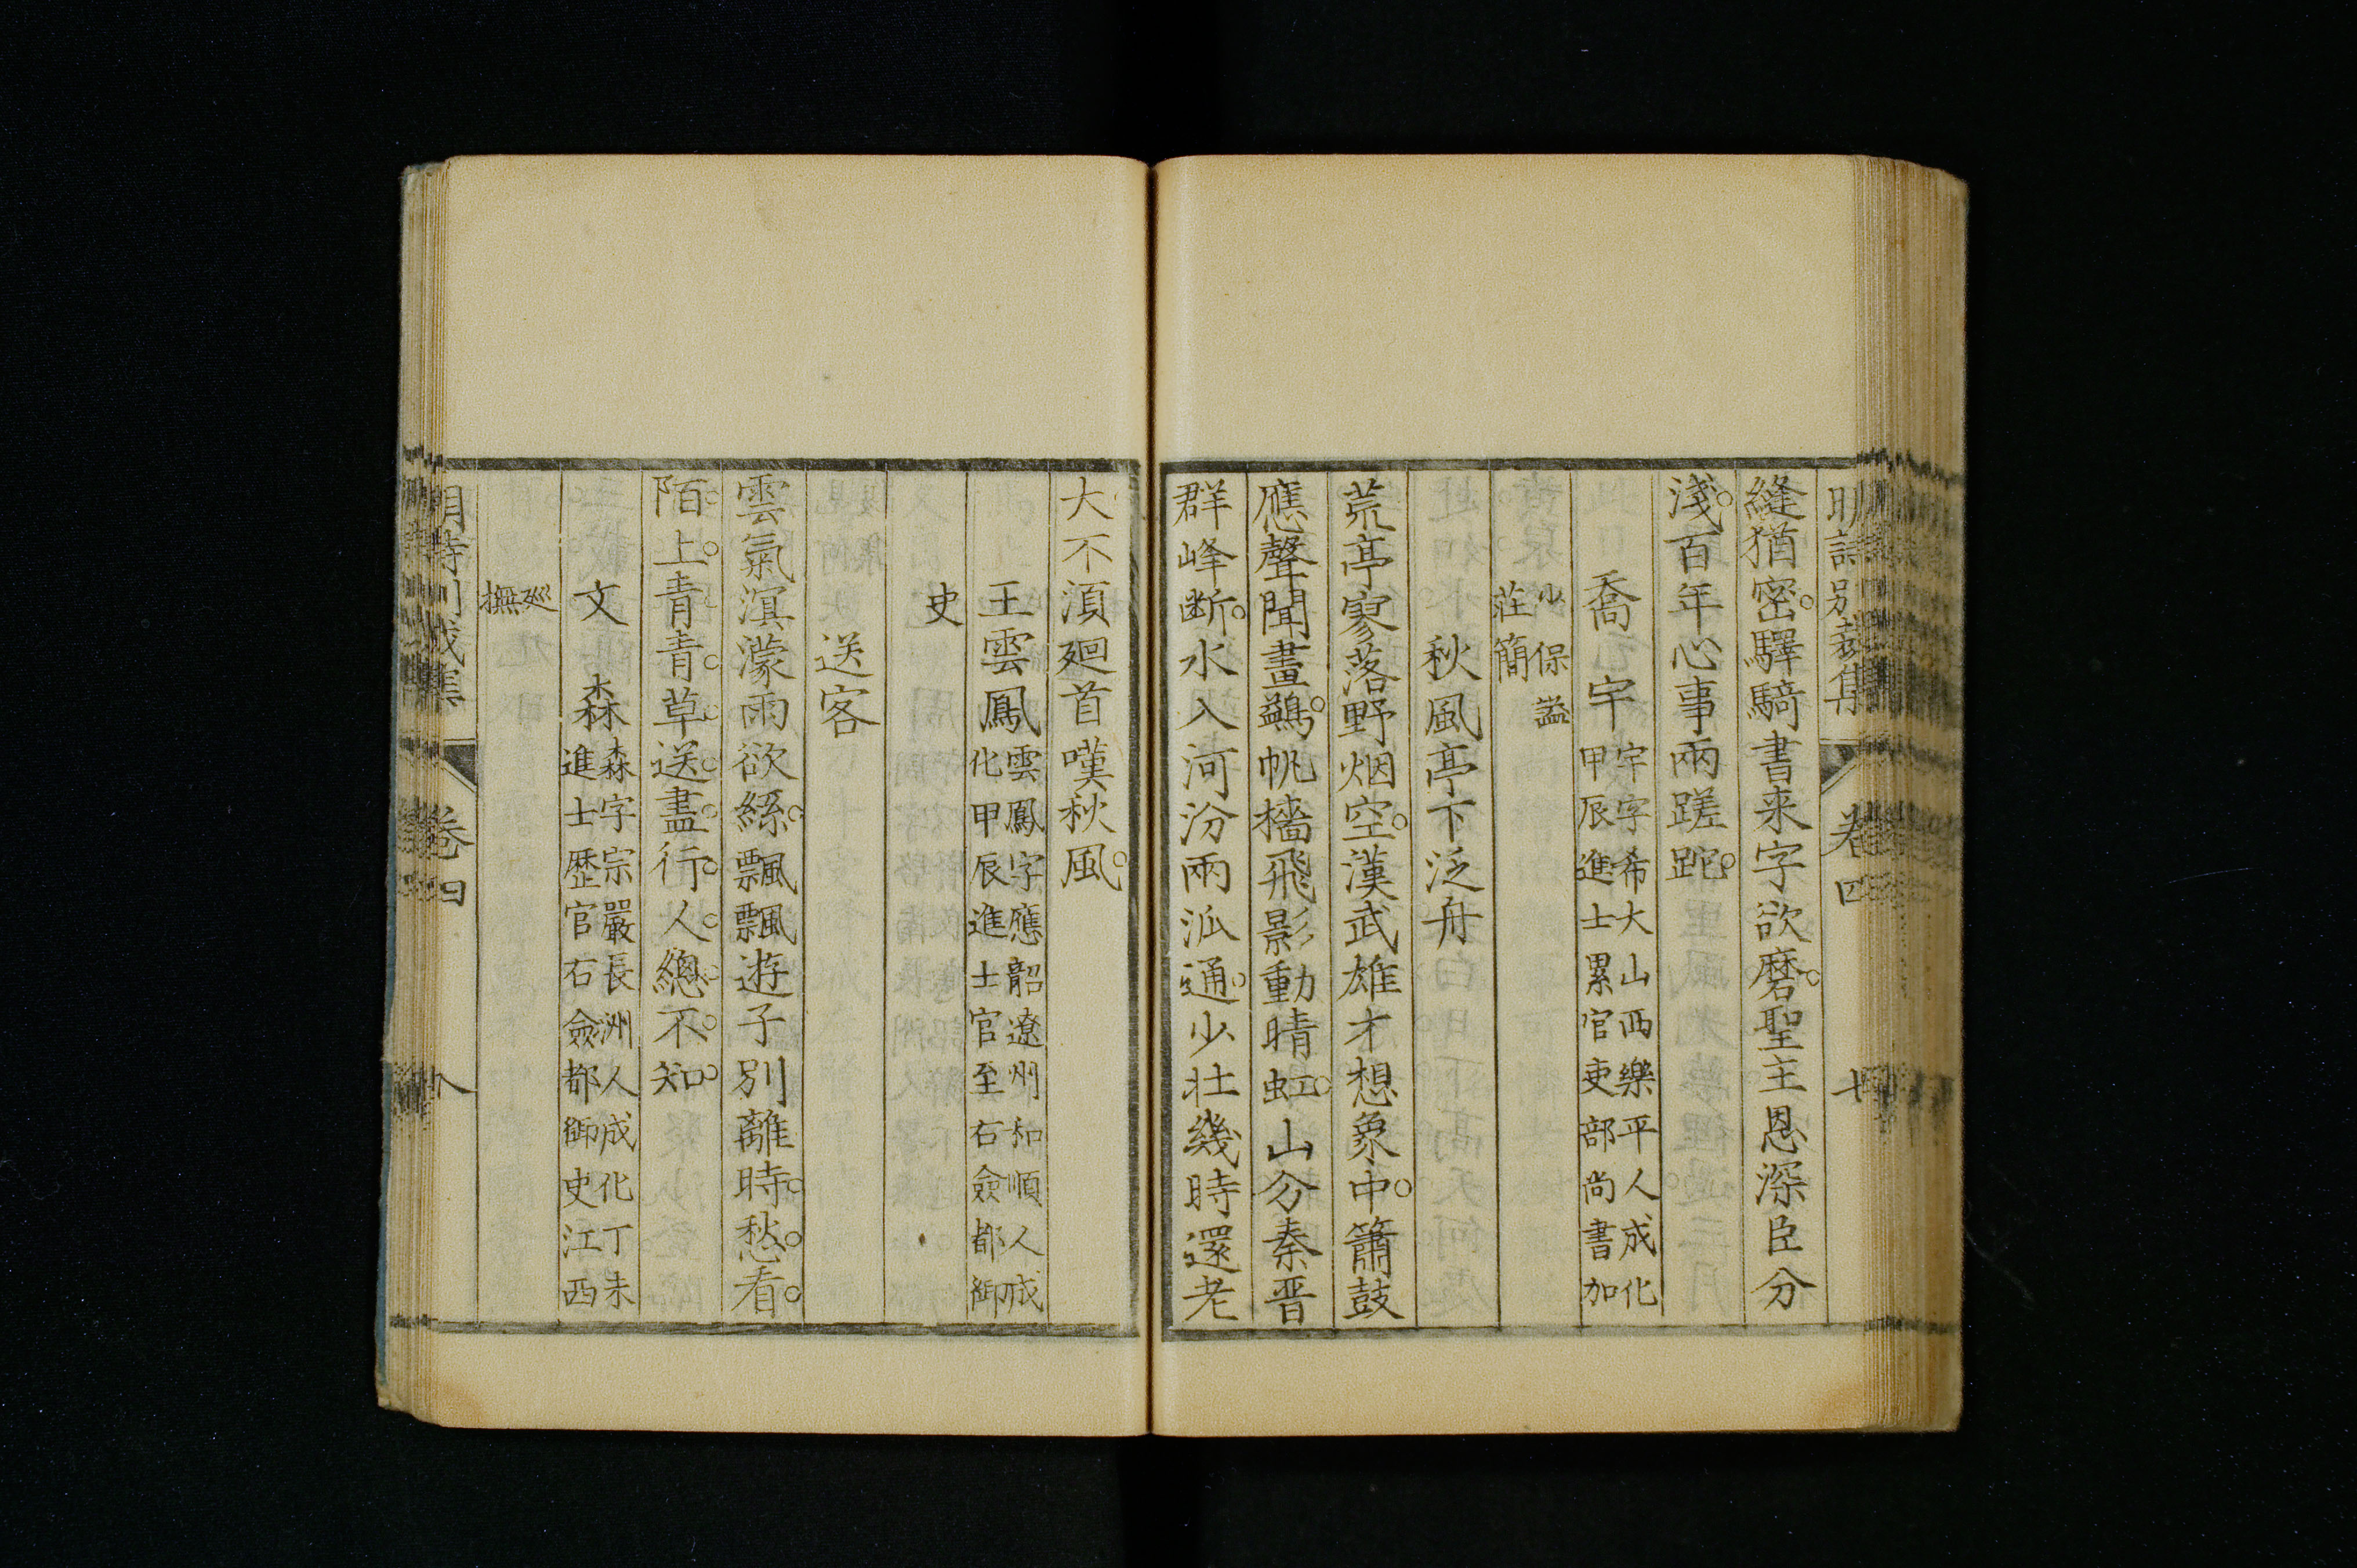 明詩別裁集 卷四 七
縫猶密。驛騎書来字欲磨。聖主恩深臣分
淺。百年心事兩蹉跎。
喬宇 宇字希大山西樂平人成化
甲辰進士累官吏部尚書加
少保謚
莊簡
秋風亭下泛舟
荒亭寥落野烟空。漢武雄才想象中。簫鼓
應聲聞畫鷁。帆檣飛影動晴虹。山分秦晋
群峰断。水入河汾兩派通。少壮幾時還老
大不須廻首嘆秋風。
王雲鳳 雲鳳字應韶遼州和順人成
化甲辰進士官至右僉都御
史
送客
雲氣溟濛雨欲絲。飄飄遊子別離時。愁。看。
陌。上。青。青。草。送。盡。行。人。總。不。知。
文森 森字宗嚴長洲人成化丁未
進士歷官右僉都御史江西
廵
撫
明詩別裁集 卷四 八